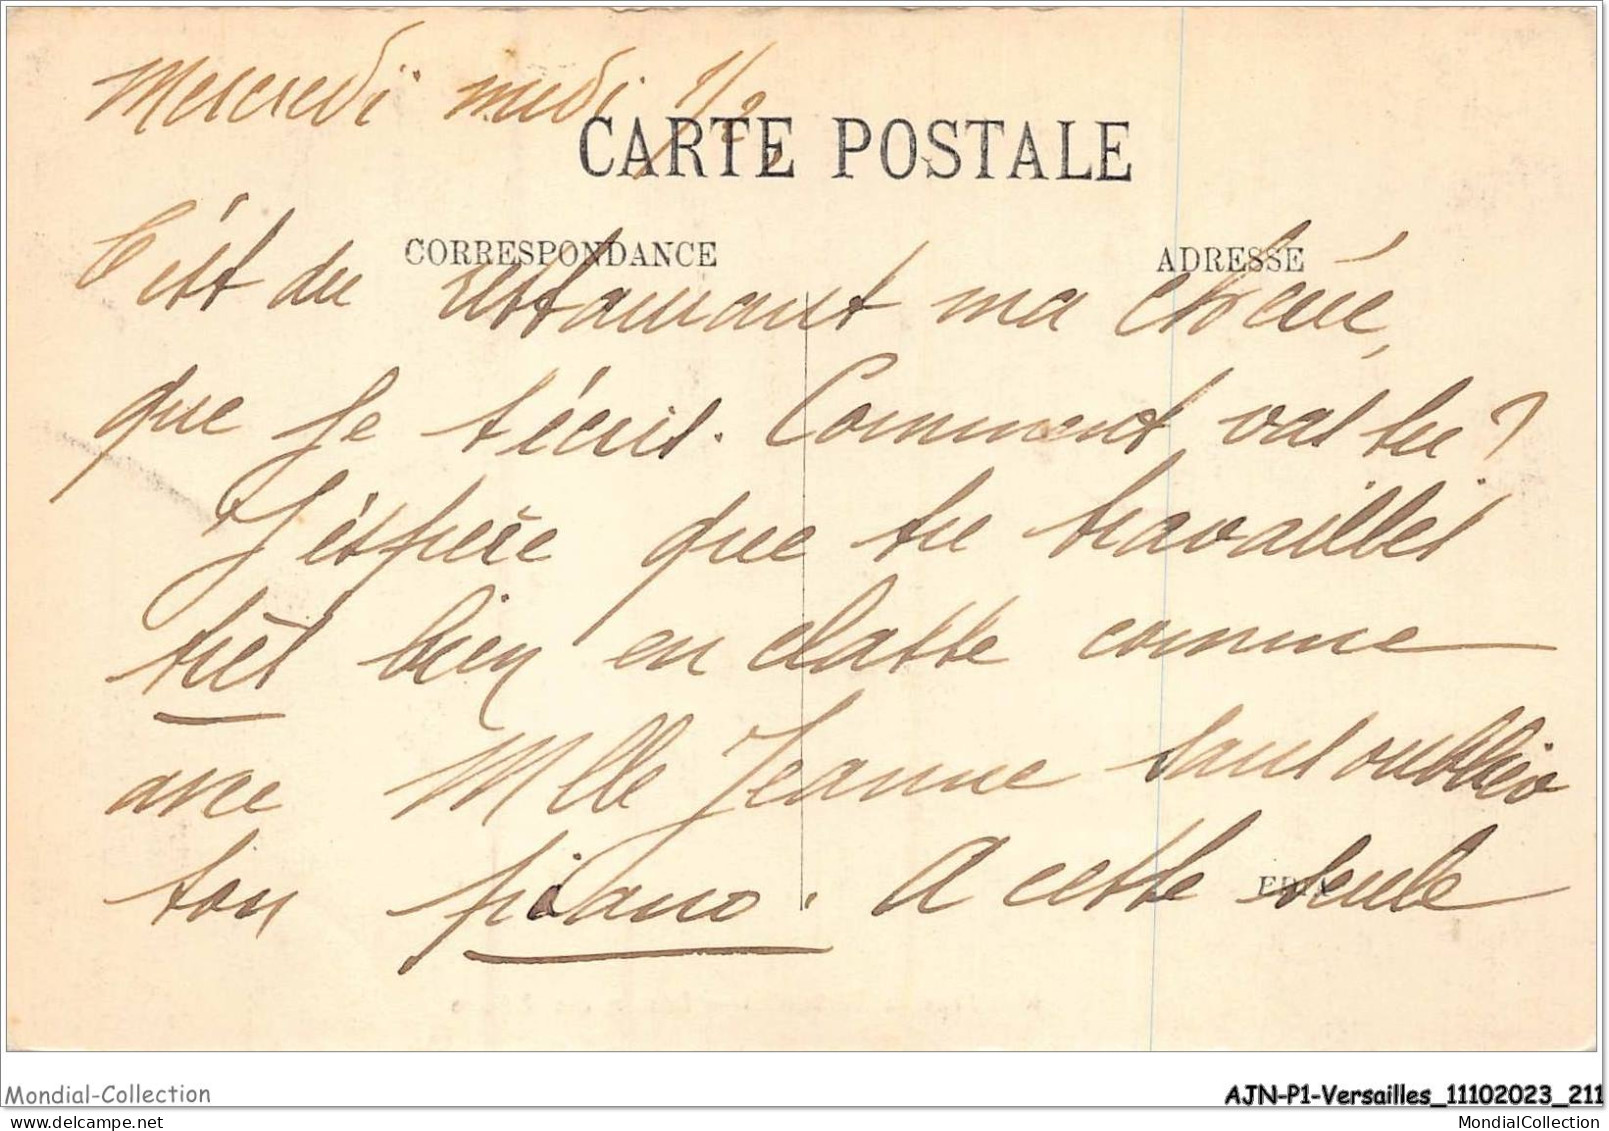 Mercredi midi 1/2
CARTE POSTALE
CORRESPONDANCE
ADRESSE
C'est du restaurant ma chérie,
que je t'écris. Comment vas tu ?
J'espère que tu travailles
très bien en classe comme
avec Mlle Jeanne sans oublier
ton piano. A cette seule
Mondial-Collection
AJN-P1-Versailles_11102023_211
www.delcampe.net
MondialCollection